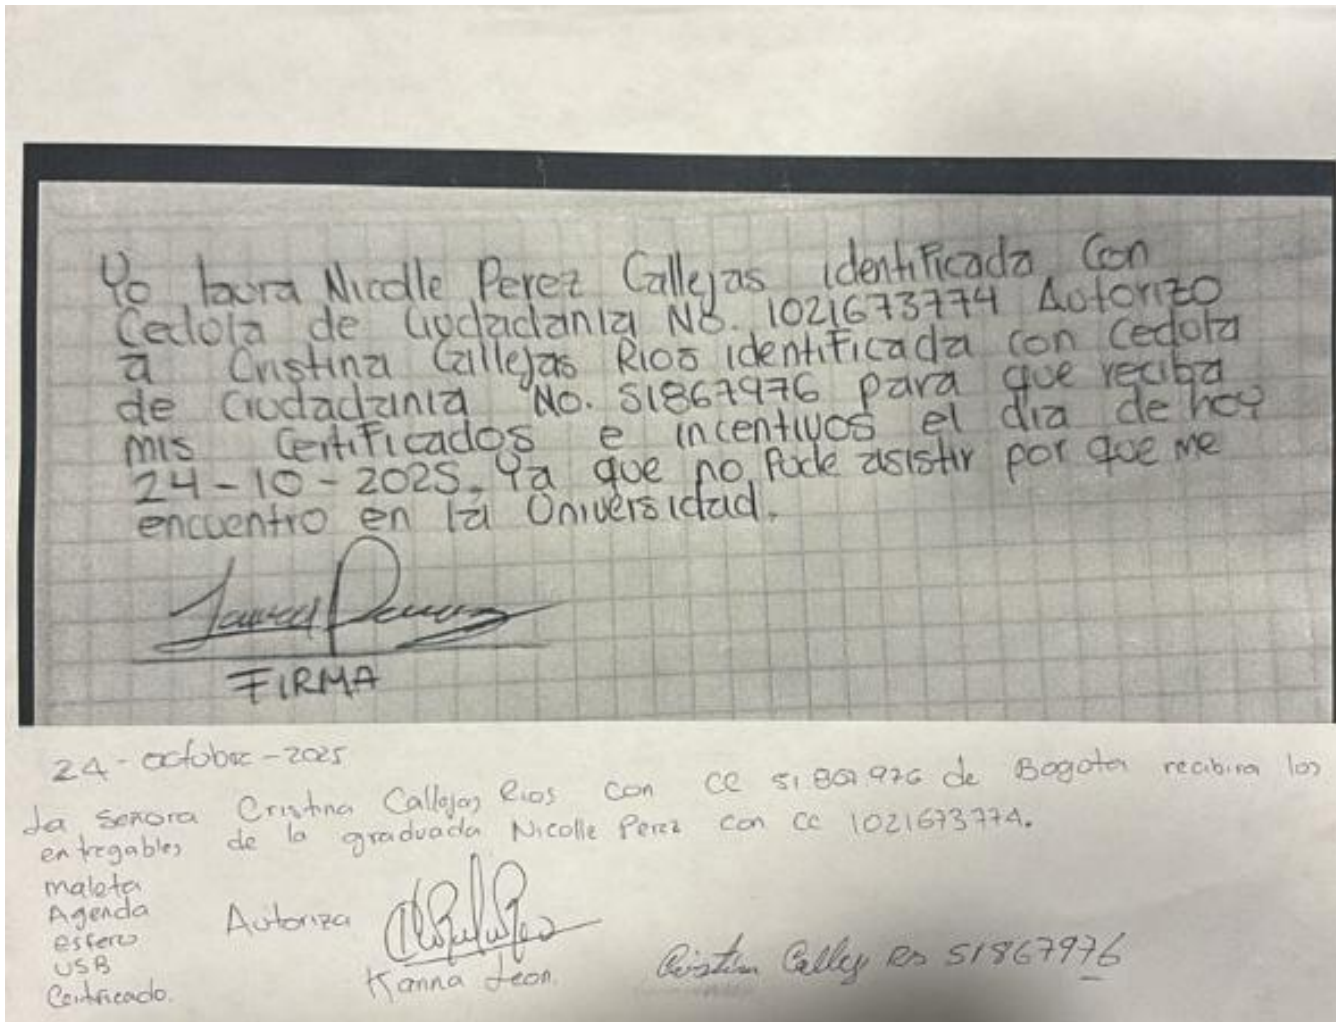 Yo laura Nicolle Perez Callejas identificada con
Cedola de Ciudadania No. 1021673774 Autorizo
a Cristina Callejas Rios identificada con Cedola
de Ciudadania No. 51867976 para que reciba
mis Certificados e incentivos el dia de hoy
24-10-2025. Ya que no pude asistir por que me
encuentro en la Universidad.
FIRMA
24-octubre-2025
La señora Cristina Callejas Rios con CC 51867.976 de Bogota recibira los
entregables de la graduada Nicolle Perez con cc 1021673774.
maleta
Agenda
esfero
USB
Certificado.
Autoriza
Karina Leon.
Cristina Callejas Rios 51867976